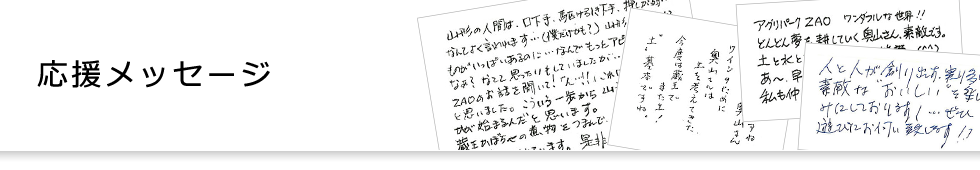 応援メッセージ
山形の人間は、口下手、駆け引き下手、押しが弱い
なんてよく言われます…(僕だけかも?)
ものがいっぱいあるのに…なんでもっとアピ
なぁ?なんて思ったりもしていましたが…
ZAOのお話を聞いて!
と思いました。こういう一歩から山
が始まるんだと思います。
蔵王かぼちゃの煮物をつまんで
ます。是非
ワインのために
土を考えてきた
奥山さんは
今度は蔵王で
また土!
"土"基本ですね。
奥山さん
アグリパークZAO ワンダフルな世界!!
どんどん夢を耕していく奥山さん、素敵です。
土と水と
あ〜、早
私も仲
人と人が創り出す、実り多
素敵な"おいしい"を楽
みにしております!…ぜひ
遊びにお伺い致します!?